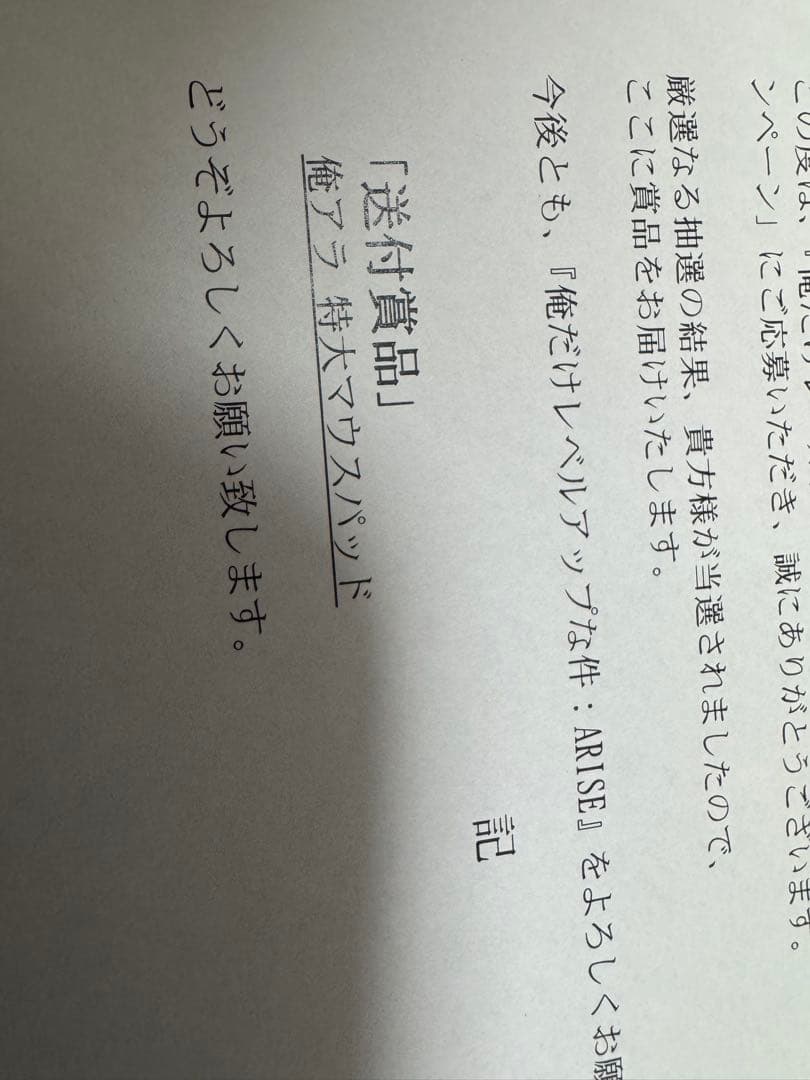 この度は、『俺だけレ
ンペーン」にご応募いただき、誠にありがとうございます。
厳選なる抽選の結果、貴方様が当選されましたので、
ここに賞品をお届けいたします。
今後とも、『俺だけレベルアップな件：ARISE』をよろしくお願
記
「送付賞品」
俺アラ 特大マウスパッド
どうぞよろしくお願い致します。